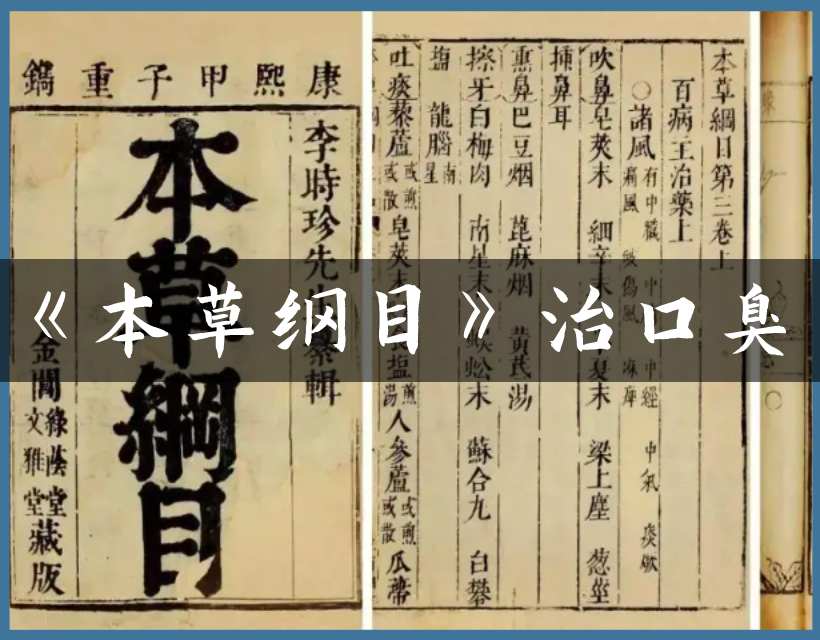 康熙甲子重鐫
李時珍先生纂輯
本草綱目
金閶
綠蔭堂
文雅堂
藏版
本草綱目第三卷上
百病主治藥上
○諸風 有中臟 中經 中氣 痰厥
痛風 破傷風 麻痺
吹鼻皂莢末 細辛末 半夏末 梁上塵 葱莖
插鼻耳
熏鼻巴豆烟 蓖麻烟 黃芪湯
擦牙白梅肉 南星末 蜈蚣末 蘇合丸 白礬
鹽 龍腦南星
吐痰藜蘆或煎或散 皂莢末 鹽煎湯 人參蘆或煎或散 瓜蒂
《本草纲目》治口臭